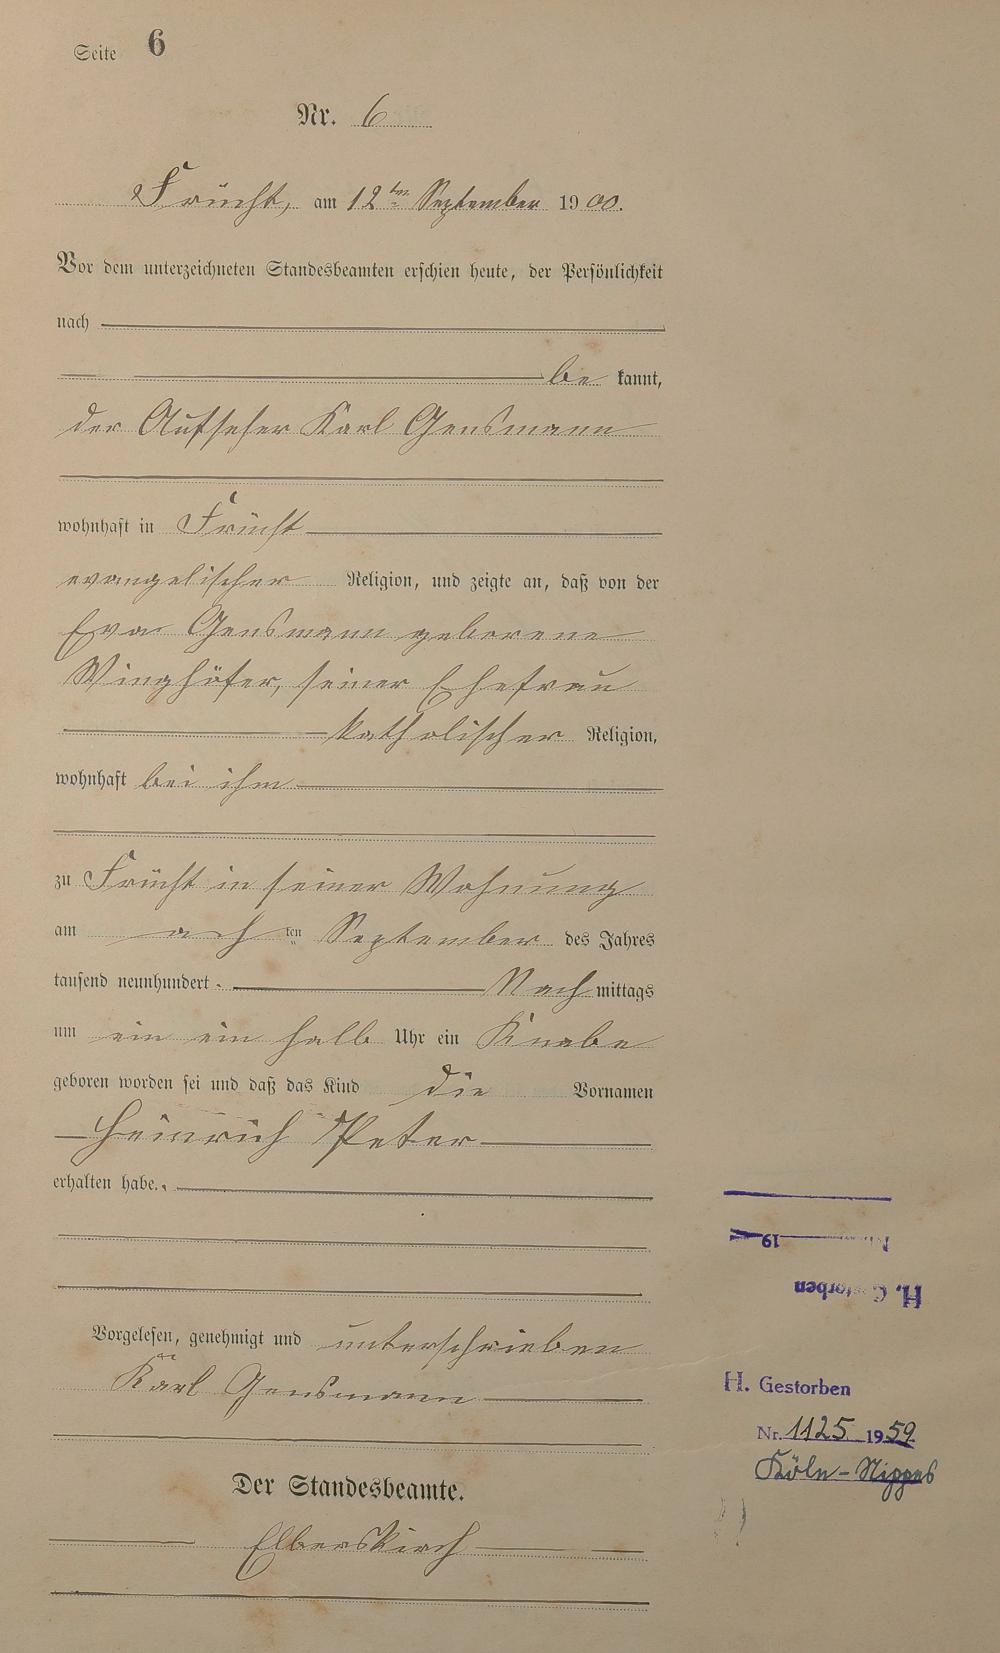 Seite 6
Nr. 6
Frücht, am 12ten September 1900.
Vor dem unterzeichneten Standesbeamten erschien heute, der Persönlichkeit
nach
be kannt,
der Aufseher Karl Gensmann
wohnhaft in Frücht
evangelischer Religion, und zeigte an, daß von der
Eva Gensmann geborene
Winghöfer, seiner Ehefrau
katholischer Religion,
wohnhaft bei ihm
zu Frücht in seiner Wohnung
am ach ten September des Jahres
tausend neunhundert Nach mittags
um ein ein halb Uhr ein Knabe
geboren worden sei und daß das Kind die Vornamen
Heinrich Peter
erhalten habe.
Vorgelesen, genehmigt und unterschrieben
Karl Gensmann
Der Standesbeamte.
Elberskirch
19
H. Gestorben
H. Gestorben
Nr. 1125 1959
Köln-Nippes